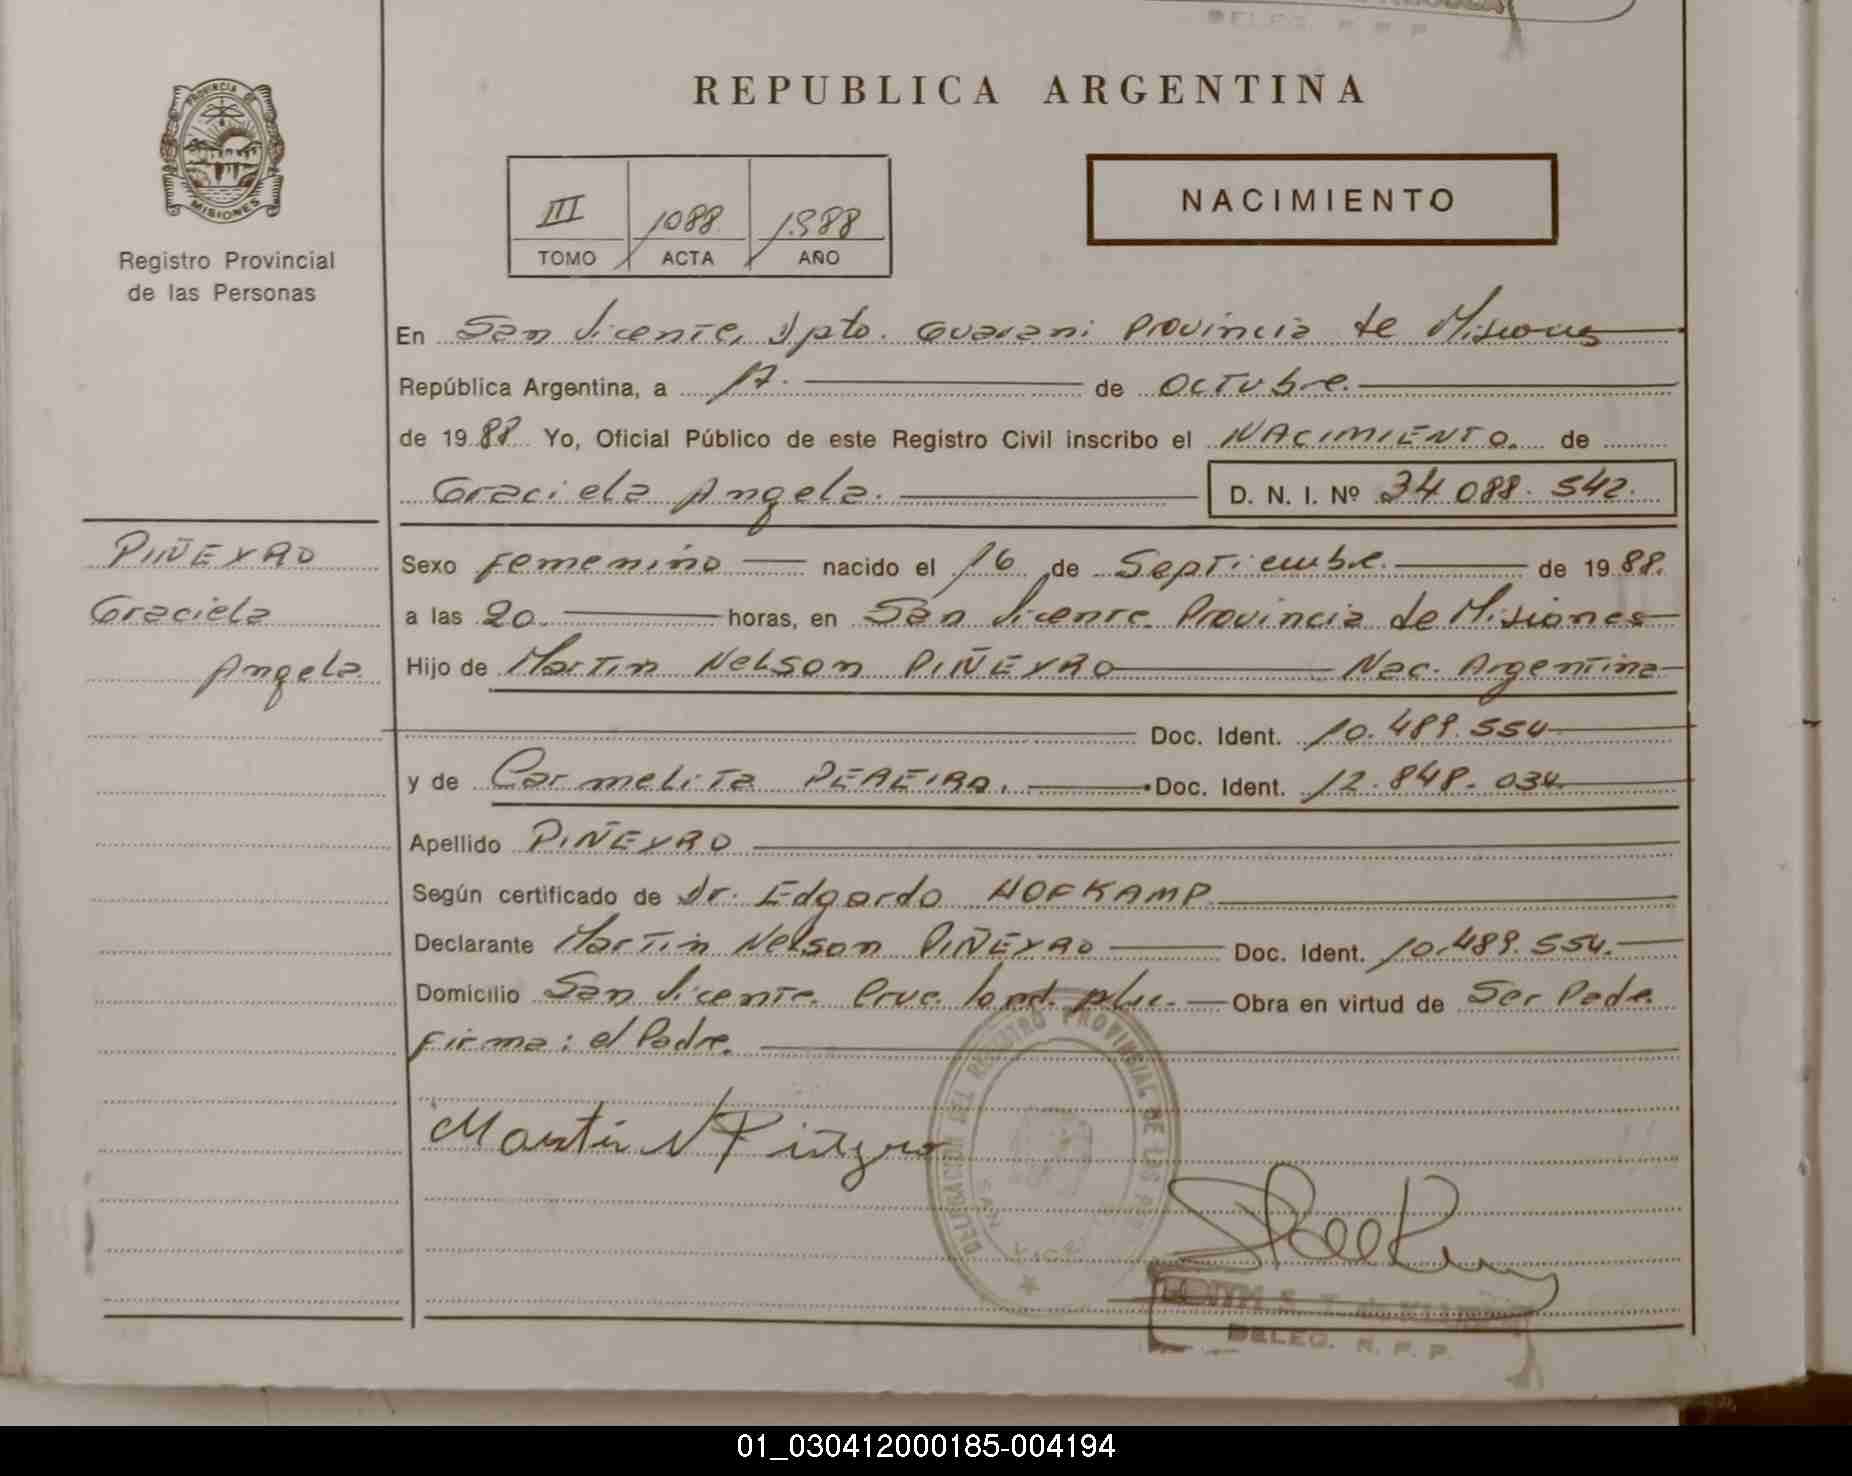 DELEG. R. P. P.
REPUBLICA ARGENTINA
PROVINCIA DE
MISIONES
NACIMIENTO
III 1088 1988
TOMO ACTA AÑO
Registro Provincial
de las Personas
En San Vicente, Dpto. Guarani Provincia de Misiones
República Argentina, a 17. de Octubre.
de 1988 Yo, Oficial Público de este Registro Civil inscribo el NACIMIENTO. de
Graciela Angela. D. N. I. Nº 34 088. 542.
PIÑEYRO
Graciela
Angela
Sexo femenino nacido el 16 de Septiembre. de 1988.
a las 20. horas, en San Vicente Provincia de Misiones
Hijo de Martin Nelson PIÑEYRO Nac. Argentina
Doc. Ident. 10.489.554
y de Carmelita PEREIRA. Doc. Ident. 12.848.034
Apellido PIÑEYRO
Según certificado de Dr. Edgardo HOFKAMP
Declarante Martin Nelson PIÑEYRO Doc. Ident. 10.489.554.
Domicilio San Vicente Obra en virtud de Ser Padre
firma: el Padre.
Martin N Piñeyro
DELEGACION DEL REGISTRO PROVINCIAL DE LAS PER
SAN VICENTE
EDITH
DELEG. R. P. P.
01_030412000185-004194